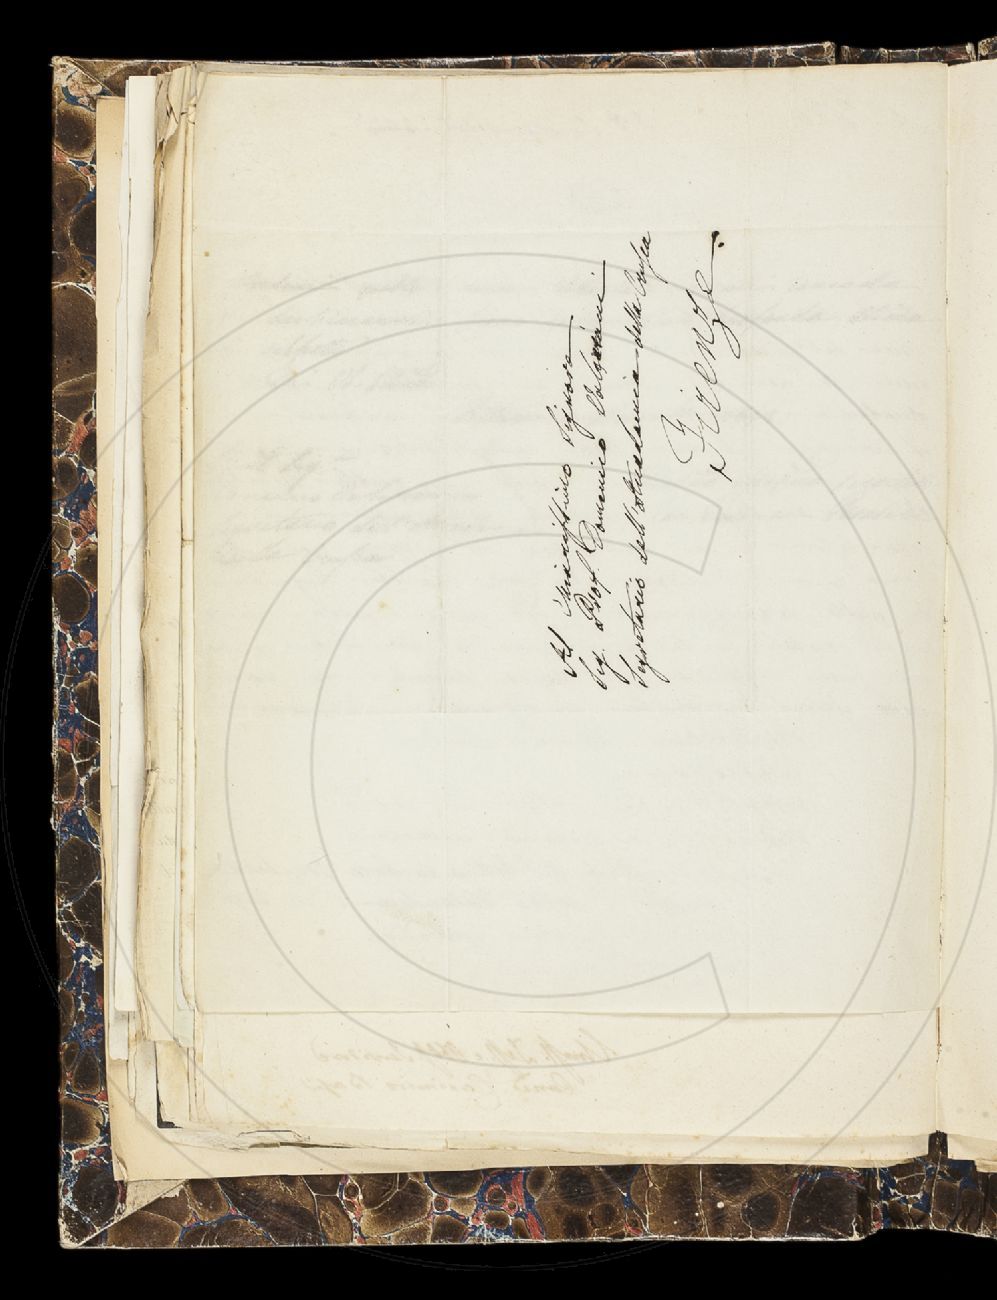 Al Chiarissimo Signore
Sig. Prof. Domenico Valeriani
Segretario dell'Accademia della Crusca
Firenze.